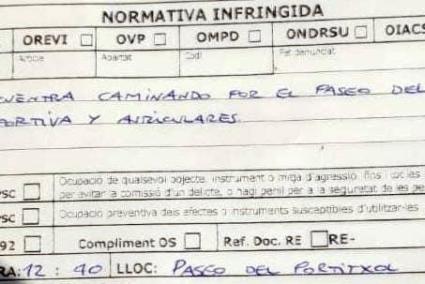 NORMATIVA INFRINGIDA
OREVI OVP OMPD ONDRSU OIACS
Article Apartat Codi Fet denunciat
CAMINANDO POR EL PASEO DEL
Y AURICULARES.
PSC Ocupació de qualsevol objecte, instrument o mitjà d'agressió, fins i tot les
per evitar la comissió d'un delicte, o hagi perill per a la seguretat de les pe
PSC Ocupació preventiva dels efectes o instruments susceptibles d'utilitzar-les
92 Compliment OS Ref. Doc. RE RE-
RA: 12 : 40 LLOC: PASEO DEL PORTITXOL